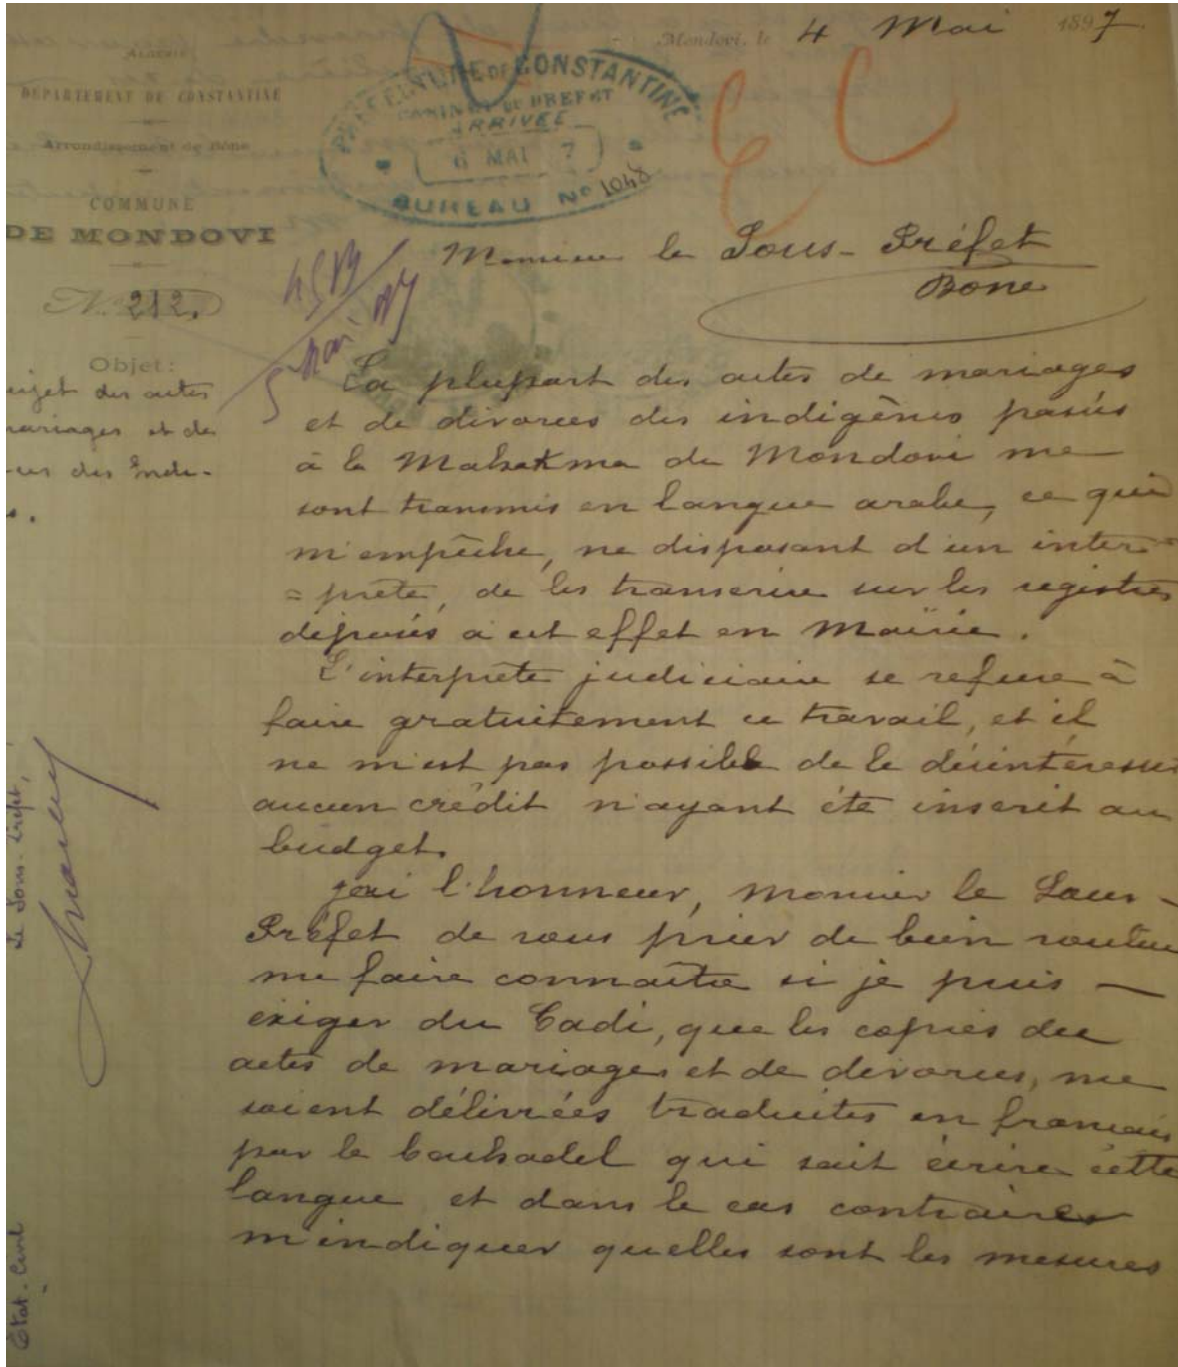 ALGÉRIE
DÉPARTEMENT DE CONSTANTINE
Arrondissement de Bône
COMMUNE
DE MONDOVI
N° 212
Objet :
sujet des actes
mariages et de
des Indi-
Mondovi, le 4 Mai 1897.
PRÉFECTURE DE CONSTANTINE
CABINET DU PREFET
ARRIVÉE
6 MAI 7
BUREAU N° 1048
E C
5 Mai 97
Monsieur le Sous-Préfet
Bone
La plupart des actes de mariages
et de divorces des indigènes passés
à la Mahakma de Mondovi me
sont transmis en langue arabe, ce qui
m'empêche, ne disposant d'un inter=
=prète, de les transcrire sur les registres
déposés à cet effet en Mairie.
L'interprète judiciaire se refuse à
faire gratuitement ce travail, et il
ne m'est pas possible de le désintéresser
aucun crédit n'ayant été inscrit au
budget.
J'ai l'honneur, Monsieur le Sous-
Préfet de vous prier de bien vouloir
me faire connaître si je puis —
exiger du Cadi, que les copies des
actes de mariages et de divorces, me
soient délivrées traduites en français
par le bachadel qui sait écrire cette
langue et dans le cas contraire
m'indiquer quelles sont les mesures
Le Sous-Préfet,
Etat-Civil